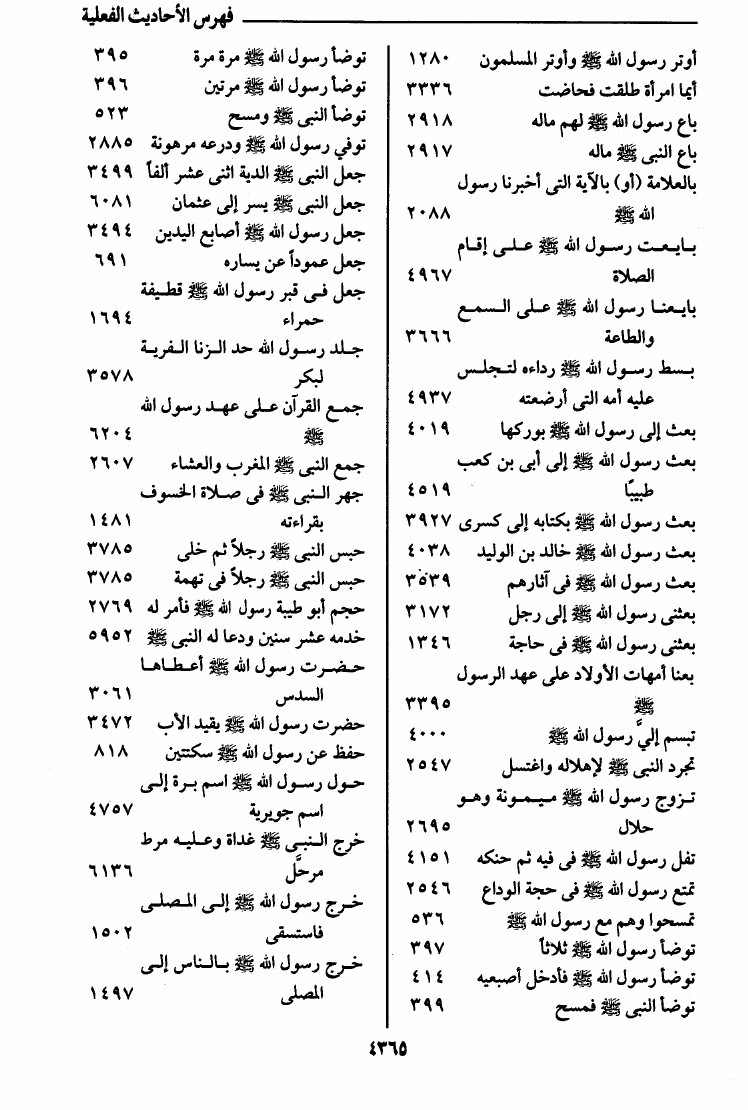 فهرس الأحاديث الفعلية
أوتر رسول الله ﷺ وأوتر المسلمون ١٢٨٠
أيما امرأة طلقت فحاضت ٣٣٣٦
باع رسول الله ﷺ لهم ماله ٢٩١٨
باع النبى ﷺ ماله ٢٩١٧
بالعلامة (أو) بالآية التى أخبرنا رسول
الله ﷺ ٢٠٨٨
بـايـعـت رسـول الله ﷺ عـلـى إقـام
الصلاة ٤٩٦٧
بايـعنـا رسول الله ﷺ عـلى الـسمـع
والطاعة ٣٦٦٦
بـسط رسـول الله ﷺ رداءه لتـجلـس
عليه أمه التى أرضعته ٤٩٣٧
بعث إلى رسول الله ﷺ بوركها ٤٠١٩
بعث رسول الله ﷺ إلى أبى بن كعب
طبيبًا ٤٥١٩
بعث رسول الله ﷺ بكتابه إلى كسرى ٣٩٢٧
بعث رسول الله ﷺ خالد بن الوليد ٤٠٣٨
بعث رسول الله ﷺ فى آثارهم ٣٥٣٩
بعثنى رسول الله ﷺ إلى رجل ٣١٧٢
بعثنى رسول الله ﷺ فى حاجة ١٣٤٦
بعنا أمهات الأولاد على عهد الرسول
ﷺ ٣٣٩٥
تبسم إليَّ رسول الله ﷺ ٤٠٠٠
تجرد النبى ﷺ لإهلاله واغتسل ٢٥٤٧
تـزوج رسول الله ﷺ مـيـمـونة وهـو
حلال ٢٦٩٥
تفل رسول الله ﷺ فى فيه ثم حنكه ٤١٥١
تمتع رسول الله ﷺ فى حجة الوداع ٢٥٤٦
تمسحوا وهم مع رسول الله ﷺ ٥٣٦
توضأ رسول الله ﷺ ثلاثاً ٣٩٧
توضأ رسول الله ﷺ فأدخل أصبعيه ٤١٤
توضأ النبى ﷺ فمسح ٣٩٩
توضأ رسول الله ﷺ مرة مرة ٣٩٥
توضأ رسول الله ﷺ مرتين ٣٩٦
توضأ النبى ﷺ ومسح ٥٢٣
توفي رسول الله ﷺ ودرعه مرهونة ٢٨٨٥
جعل النبى ﷺ الدية اثنى عشر ألفاً ٣٤٩٩
جعل النبى ﷺ يسر إلى عثمان ٦٠٨١
جعل رسول الله ﷺ أصابع اليدين ٣٤٩٤
جعل عموداً عن يساره ٦٩١
جعل فـى قبر رسول الله ﷺ قطـيفة
حمراء ١٦٩٤
جـلـد رسـول الله حد الـزنا الـفريـة
لبكر ٣٥٧٨
جمـع القرآن عـلـى عهـد رسول الله
ﷺ ٦٢٠٤
جمع النبى ﷺ المغرب والعشاء ٢٦٠٧
جهر الـنبى ﷺ فى صـلاة الخسوف
بقراءته ١٤٨١
حبس النبى ﷺ رجلاً ثم خلى ٣٧٨٥
حبس النبى ﷺ رجلاً فى تهمة ٣٧٨٥
حجم أبو طيبة رسول الله ﷺ فأمر له ٢٧٦٩
خدمه عشر سنين ودعا له النبى ﷺ ٥٩٥٢
حـضـرت رسول الله ﷺ أعـطـاهـا
السدس ٣٠٦١
حضرت رسول الله ﷺ يقيد الأب ٣٤٧٢
حفظ عن رسول الله ﷺ سكتتين ٨١٨
حـول رسـول الله ﷺ اسم بـرة إلـى
اسم جويرية ٤٧٥٧
خرج الـنبـى ﷺ غداة وعـليـه مرط
مرحَّل ٦١٣٦
خـرج رسول الله ﷺ إلـى المـصلـى
فاستسقى ١٥٠٢
خـرج رسول الله ﷺ بـالـناس إلـى
المصلى ١٤٩٧
٤٣٦٥